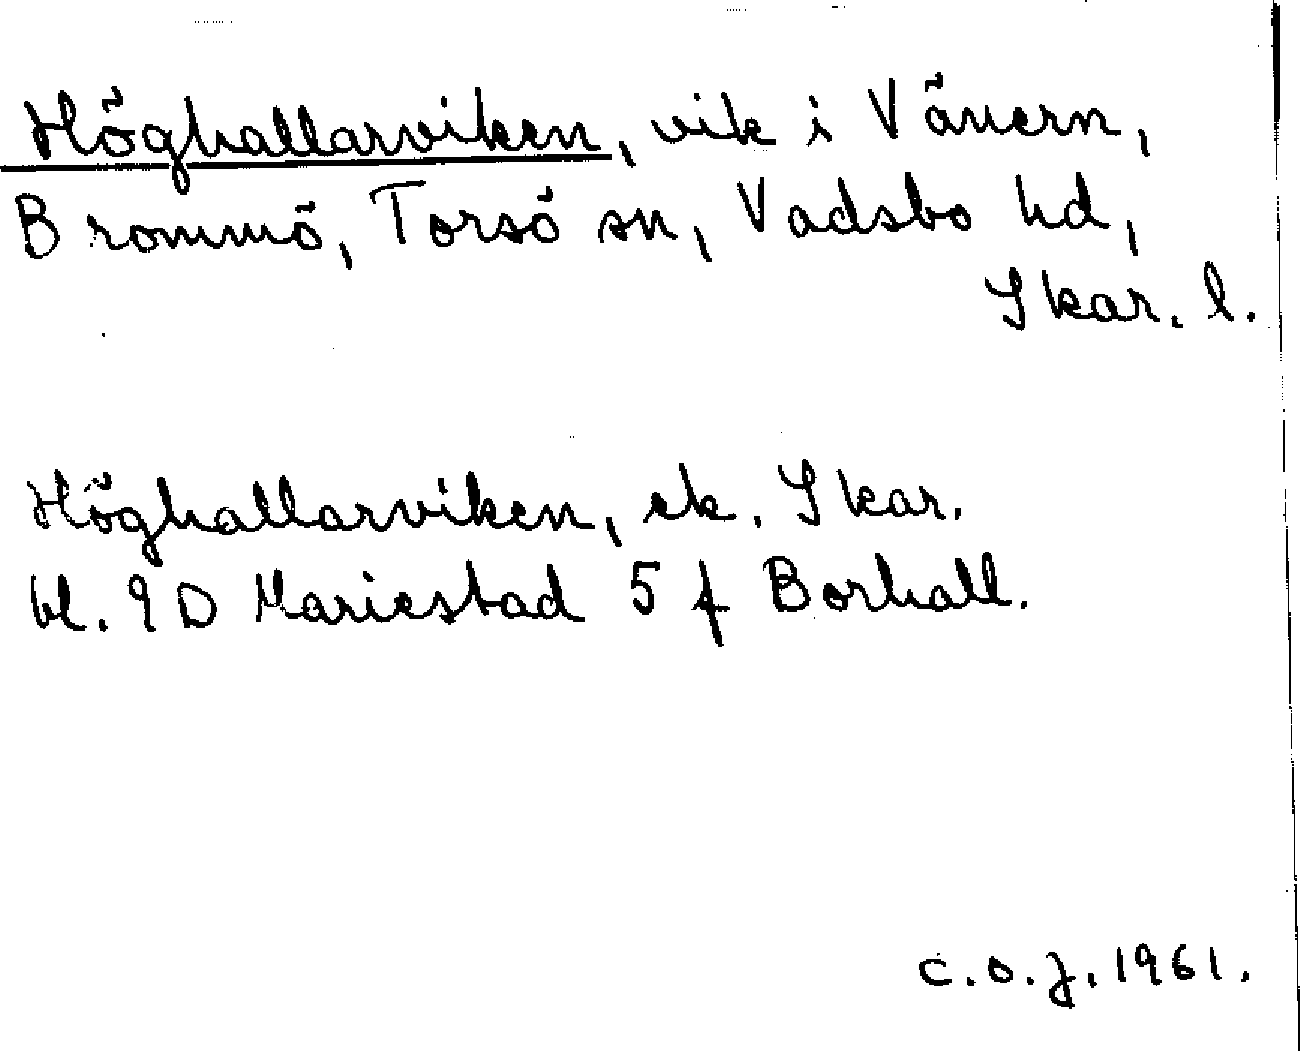 Höghallarviken, vik i Vänern,
Brommö, Torsö sn, Vadsbo hd,
Skar. l.
Höghallarviken, ek. Skar.
bl. 9D Mariestad 5 f Borhall.
C.O.J. 1961.